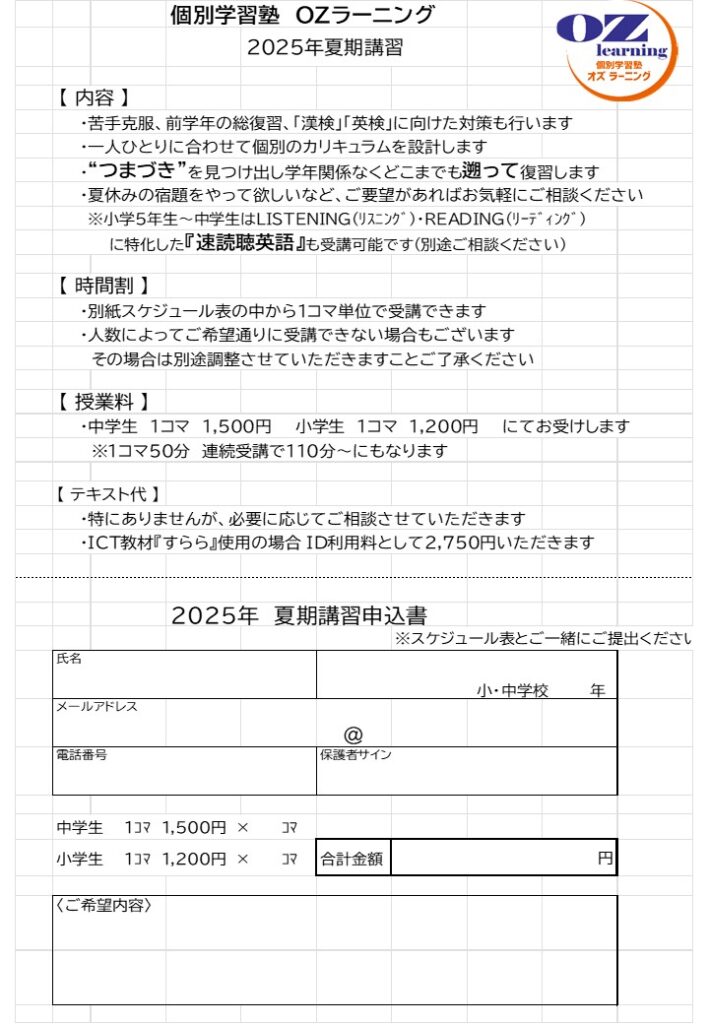 個別学習塾 OZラーニング
2025年夏期講習
OZ
learning
個別学習塾
オズ ラーニング
【 内容 】
・苦手克服、前学年の総復習、「漢検」「英検」に向けた対策も行います
・一人ひとりに合わせて個別のカリキュラムを設計します
・“つまづき”を見つけ出し学年関係なくどこまでも遡って復習します
・夏休みの宿題をやって欲しいなど、ご要望があればお気軽にご相談ください
※小学5年生～中学生はLISTENING(ﾘｽﾆﾝｸﾞ)・READING(ﾘｰﾃﾞｨﾝｸﾞ)
に特化した『速読聴英語』も受講可能です(別途ご相談ください)
【 時間割 】
・別紙スケジュール表の中から1コマ単位で受講できます
・人数によってご希望通りに受講できない場合もございます
その場合は別途調整させていただきますことご了承ください
【 授業料 】
・中学生 1コマ 1,500円 小学生 1コマ 1,200円 にてお受けします
※1コマ50分 連続受講で110分～にもなります
【 テキスト代 】
・特にありませんが、必要に応じてご相談させていただきます
・ICT教材『すらら』使用の場合 ID利用料として2,750円いただきます
2025年 夏期講習申込書
※スケジュール表とご一緒にご提出ください
氏名
小・中学校 年
メールアドレス
@
電話番号 保護者サイン
中学生 1ｺﾏ 1,500円 × ｺﾏ
小学生 1ｺﾏ 1,200円 × ｺﾏ 合計金額 円
〈ご希望内容〉